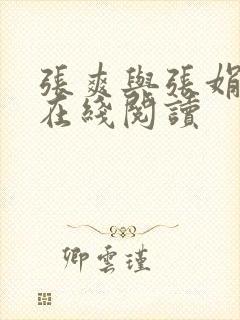 張爽與張娟
在綫閱讀
卿雲瑾